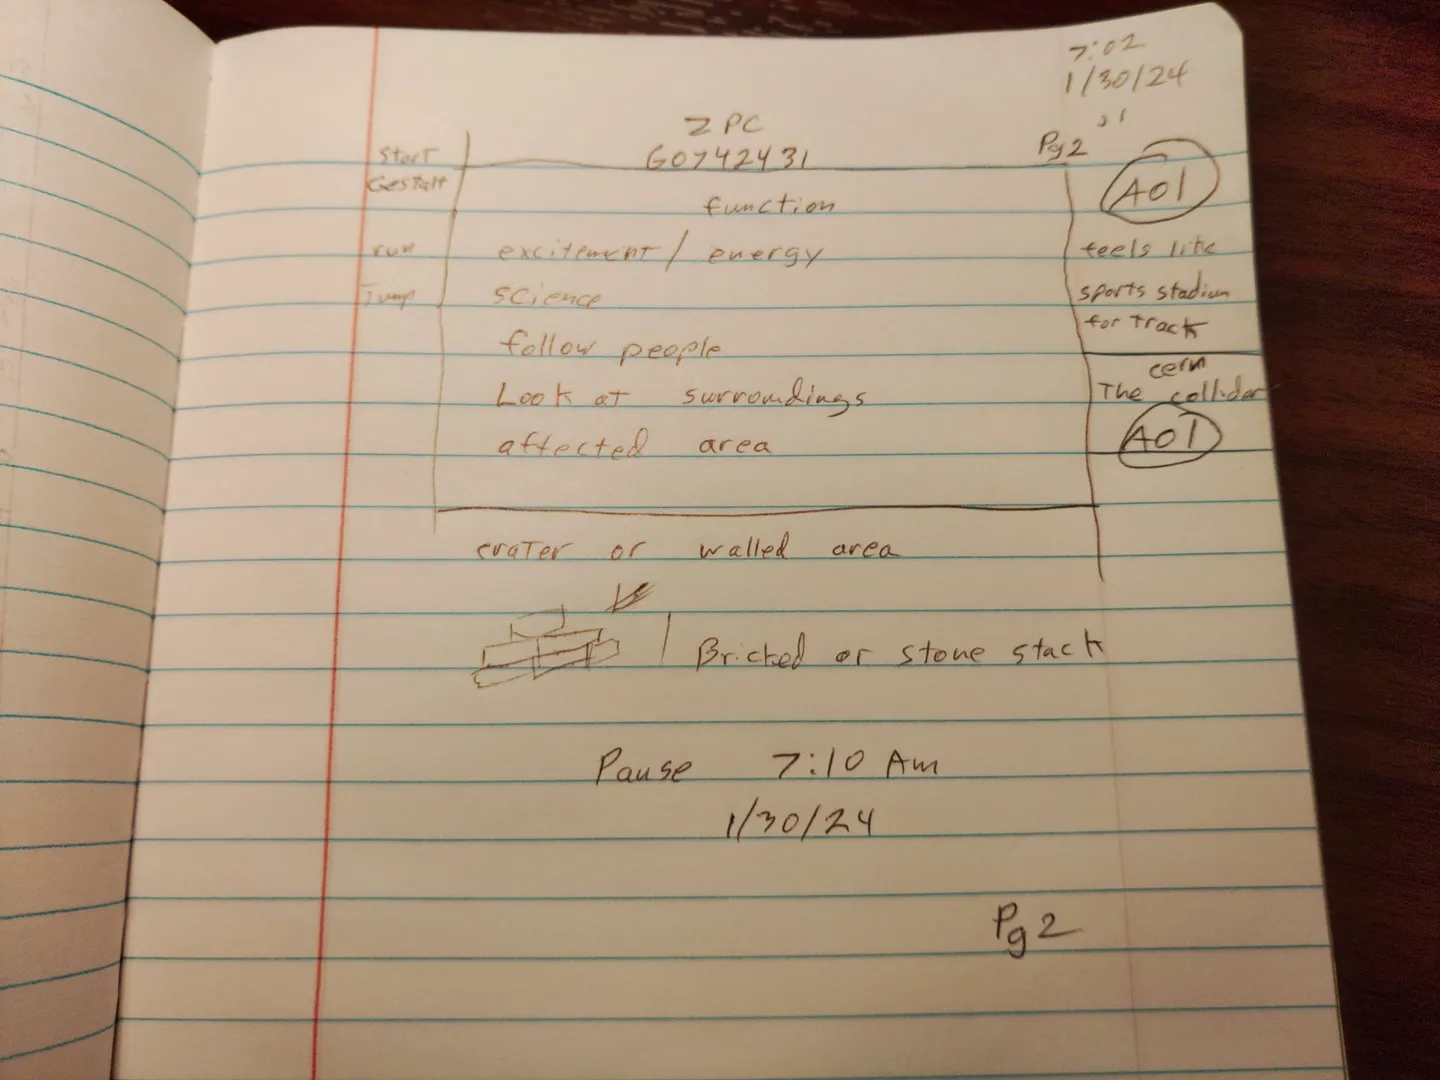 7:02
1/30/24
2 PC
G0742431
Pg2
Start
Gestalt
AOl
function
run
excitement / energy
feels like
Jump
science
sports stadium
for Track
follow people
cern
The collider
Look at surroundings
AOl
affected area
crater or walled area
Bricked or stone stack
Pause 7:10 Am
1/30/24
Pg2